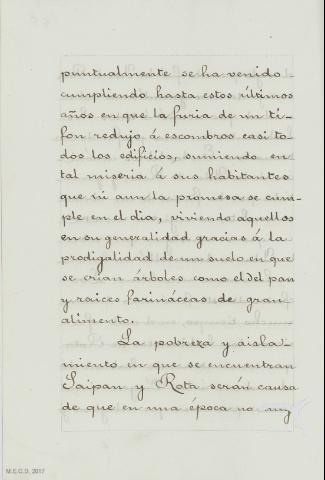 puntualmente se ha venido -
cumpliendo hasta estos últimos
años en que la furia de un ti-
fon redujo á escombros casi to-
dos los edificios, sumiendo en
tal miseria á sus habitantes
que ni aun la promesa se cum-
ple en el dia, viviendo aquellos
en su generalidad gracias á la
prodigalidad de un suelo en que
se crian árboles como el del pan
y raices farináceas de gran
alimento.
La pobreza y aisla-
miento en que se encuentran
Saipan y Rota serán causa
de que en una época no muy
M.E.C.D. 2017